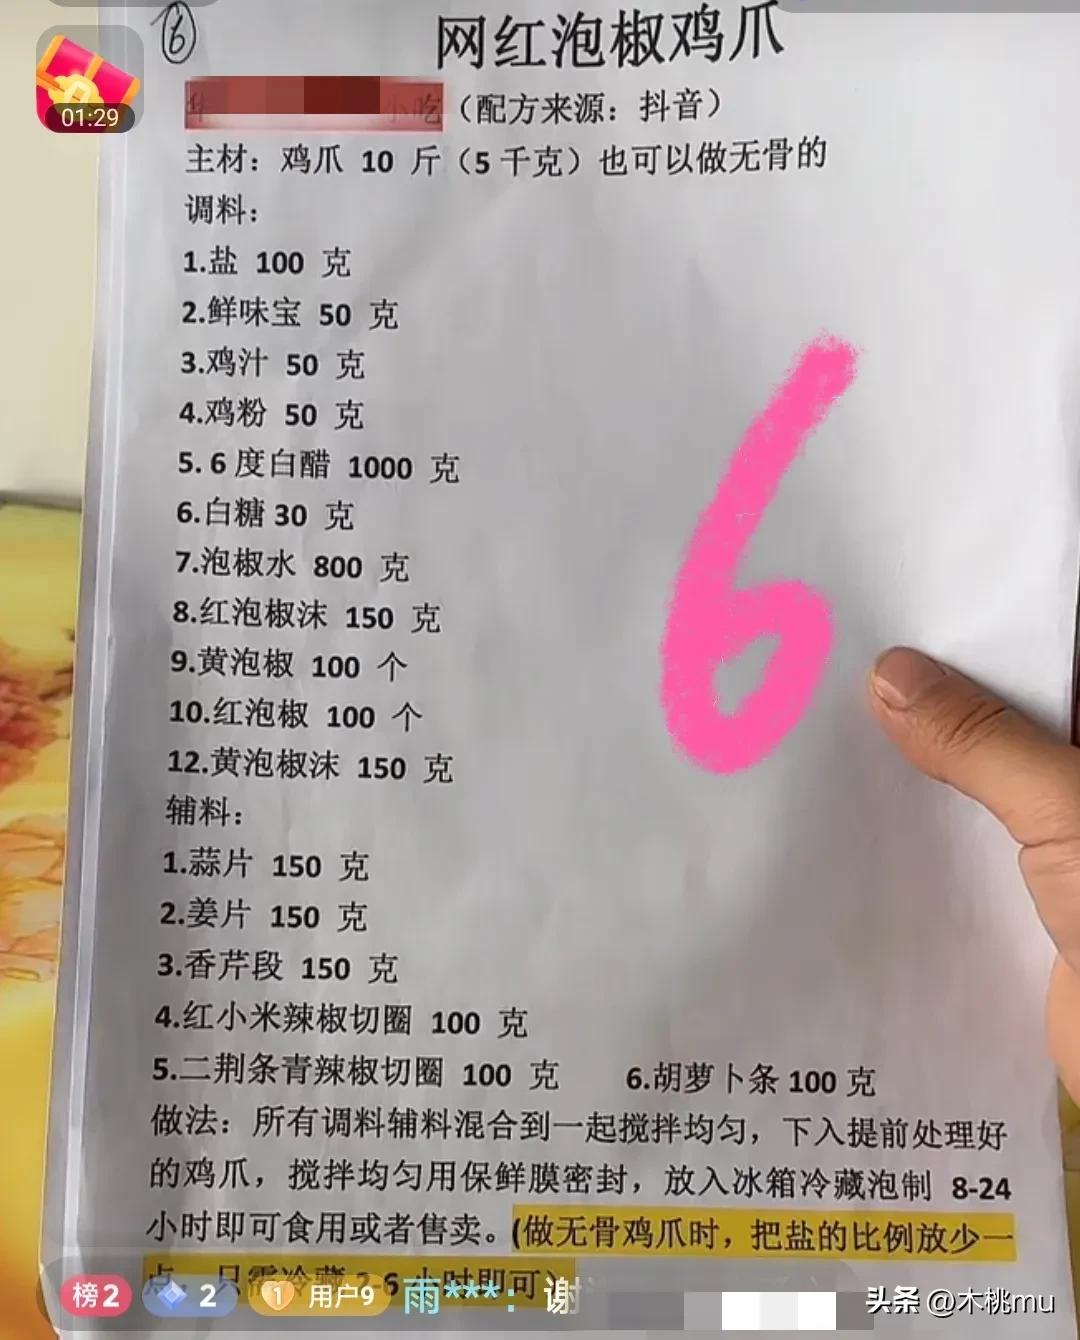 6
网红泡椒鸡爪
01:29
小吃（配方来源：抖音）
主材：鸡爪 10 斤（5 千克）也可以做无骨的
调料：
1.盐 100 克
2.鲜味宝 50 克
3.鸡汁 50 克
4.鸡粉 50 克
5. 6 度白醋 1000 克
6.白糖 30 克
7.泡椒水 800 克
8.红泡椒沫 150 克
9.黄泡椒 100 个
10.红泡椒 100 个
12.黄泡椒沫 150 克
6
辅料：
1.蒜片 150 克
2.姜片 150 克
3.香芹段 150 克
4.红小米辣椒切圈 100 克
5.二荆条青辣椒切圈 100 克 6.胡萝卜条 100 克
做法：所有调料辅料混合到一起搅拌均匀，下入提前处理好
的鸡爪，搅拌均匀用保鲜膜密封，放入冰箱冷藏泡制 8-24
小时即可食用或者售卖。(做无骨鸡爪时，把盐的比例放少一
点，只需冷藏 2-6 小时即可）
榜2 2 1 用户9 雨***：谢
头条 @木桃mu